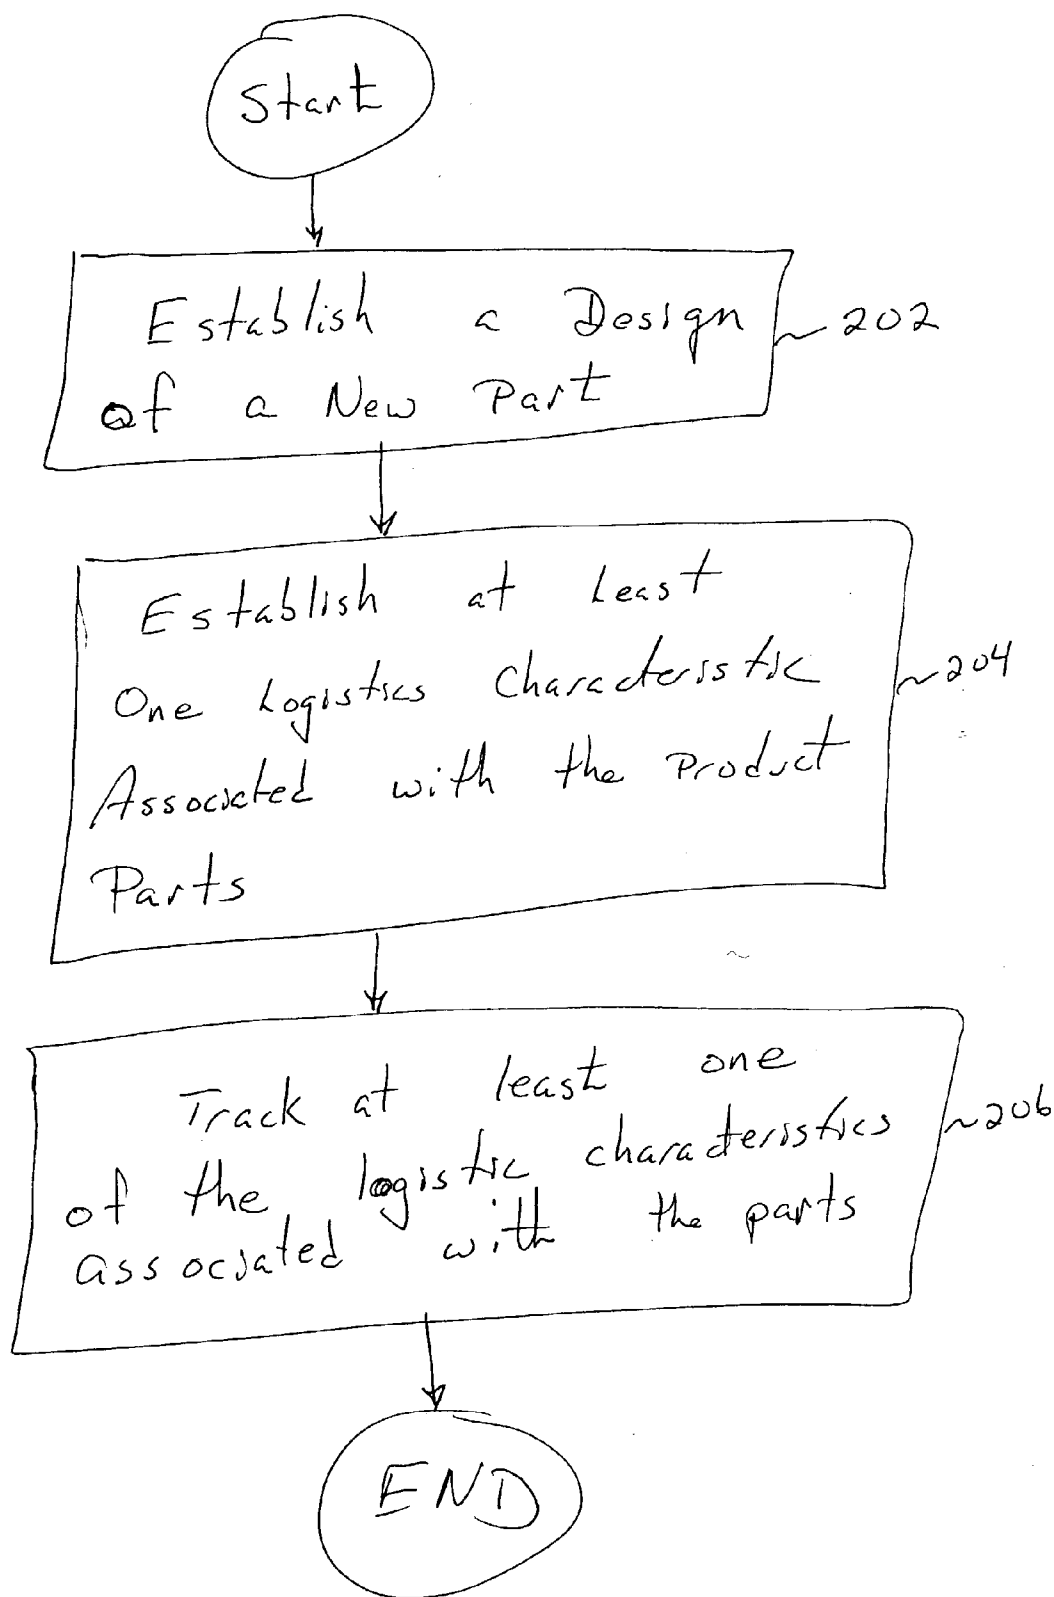 Start
Establish a Design
of a New Part
202
Establish at Least
One Logistics Characteristic
Associated with the Product
Parts
204
Track at least one
of the logistic characteristics
associated with the parts
206
END